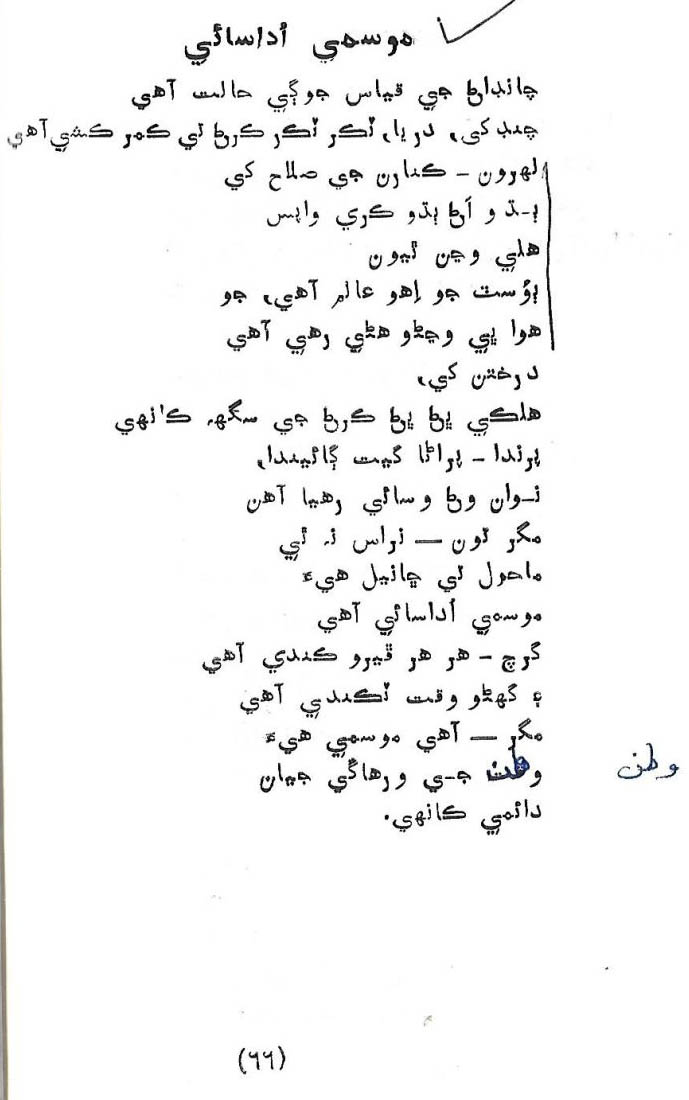 موسمي اُداسائي
چانڊاڻ جي قياس جوڳي حالت آهي
چنڊ کي، درياءَ ٽڪر ٽڪر ڪرڻ تي ڪمر ڪشي آهي
لهرون - ڪنارن جي صلاح کي
ٻڌو اَڻ ٻڌو ڪري واپس
هلي وڃن ٿيون
ٻؤست جو اِهو عالم آهي، جو
هوا پي وڃڻو هڻي رهي آهي
درختن کي،
هلڪي ڀڻ ڀڻ ڪرڻ جي سگهہ ڪانهي
پرندا - پراڻا گيت ڳائيندا،
نوان وڻ وسائي رهيا آهن
مگر تون — نراس نہ ٿي
ماحول تي ڇانيل هيءَ
موسمي اُداسائي آهي
گرچ - هر هر ڦيرو ڪندي آهي
۽ گهڻو وقت ٽڪندي آهي
مگر — آهي موسمي هيءَ
وطن جي ورهاڱي جيان
وطن
دائمي ڪانهي.
(٦٦)